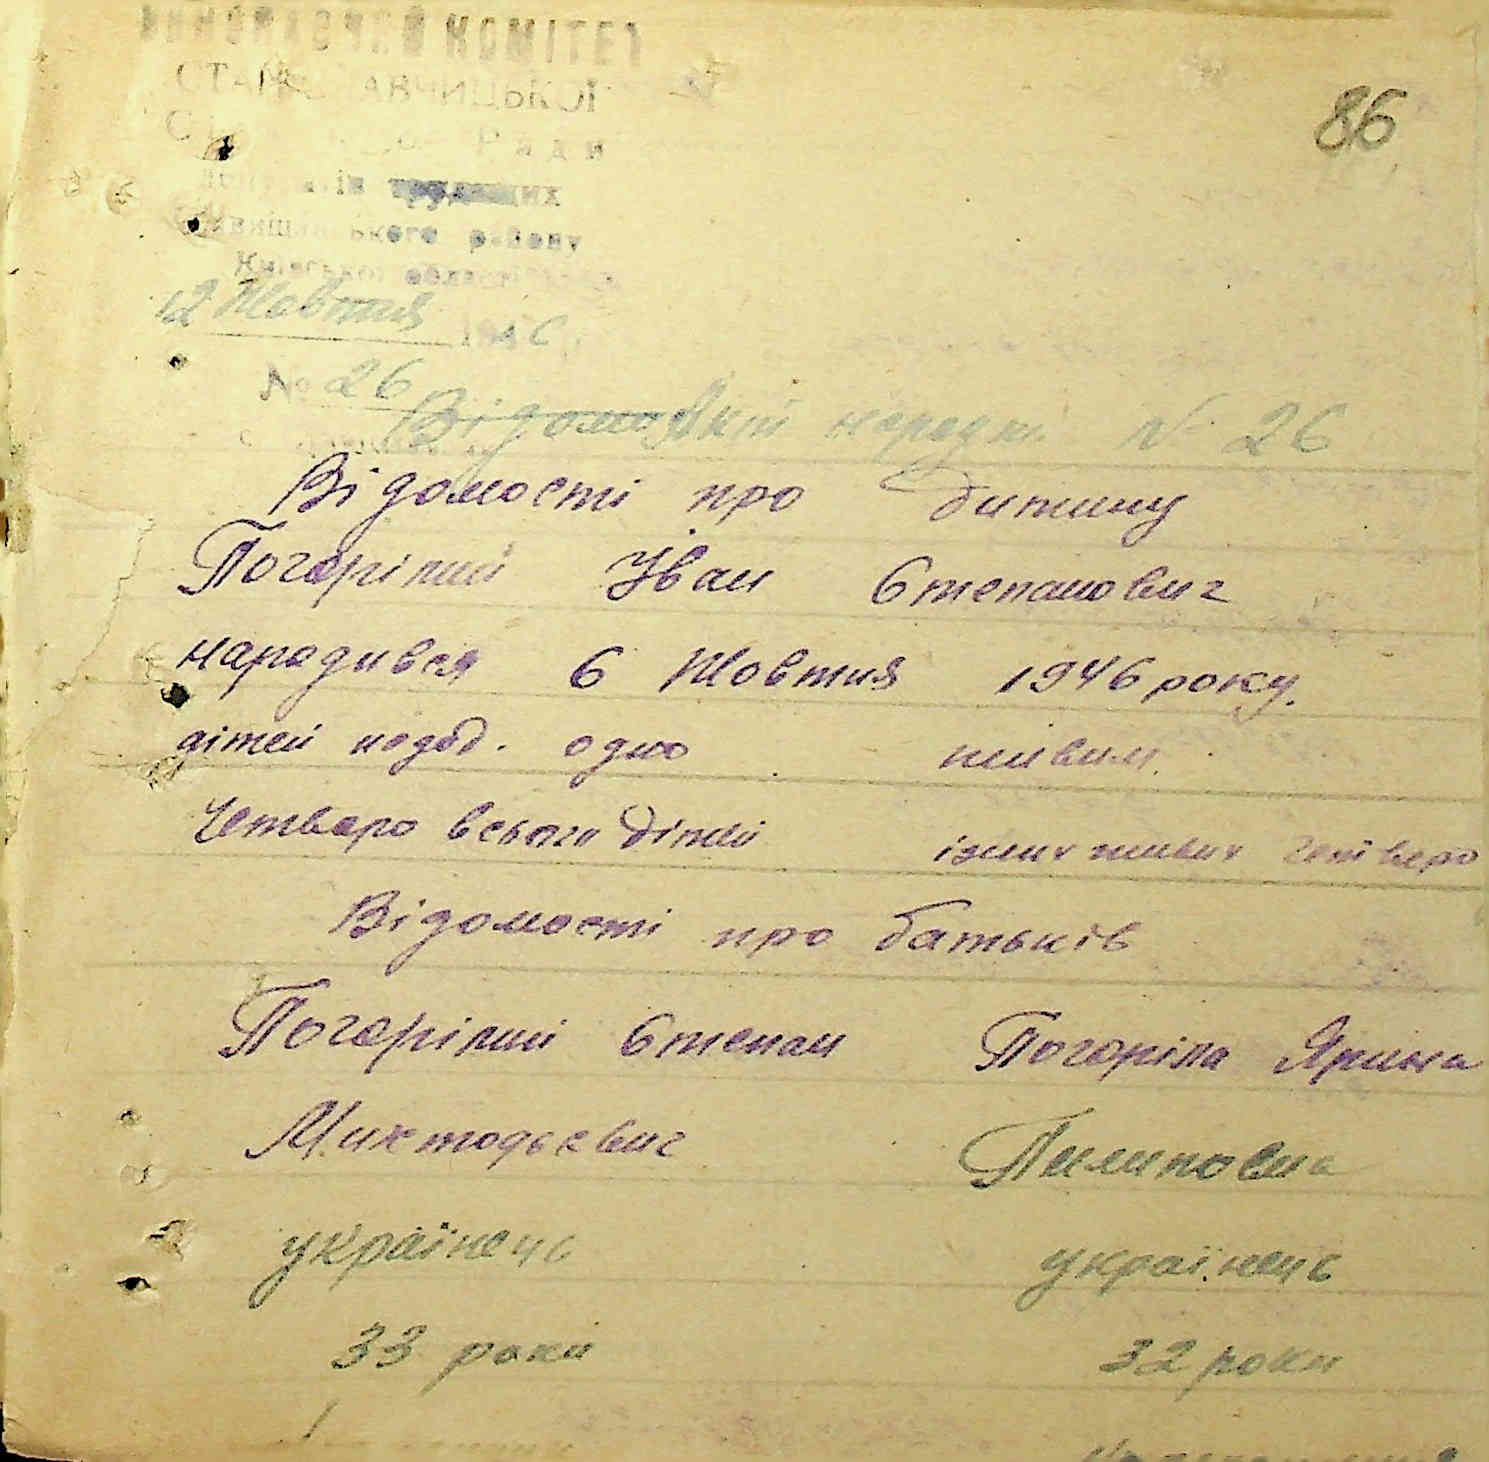 ВИКОНАВЧИЙ КОМІТЕТ
86
Ради
трудящих
району
Київської області
12 Жовтня 1946
№ 26
Відомо Акт народж. № 26
Відомості про дитину
Погорілий Іван Степанович
народився 6 Жовтня 1946 року.
дітей народ. одно живим.
Четверо всього дітей живих четверо
Відомості про батьків
Погорілий Степан Погоріла Ярина
Пилиповна
українець українець
33 роки 32 роки